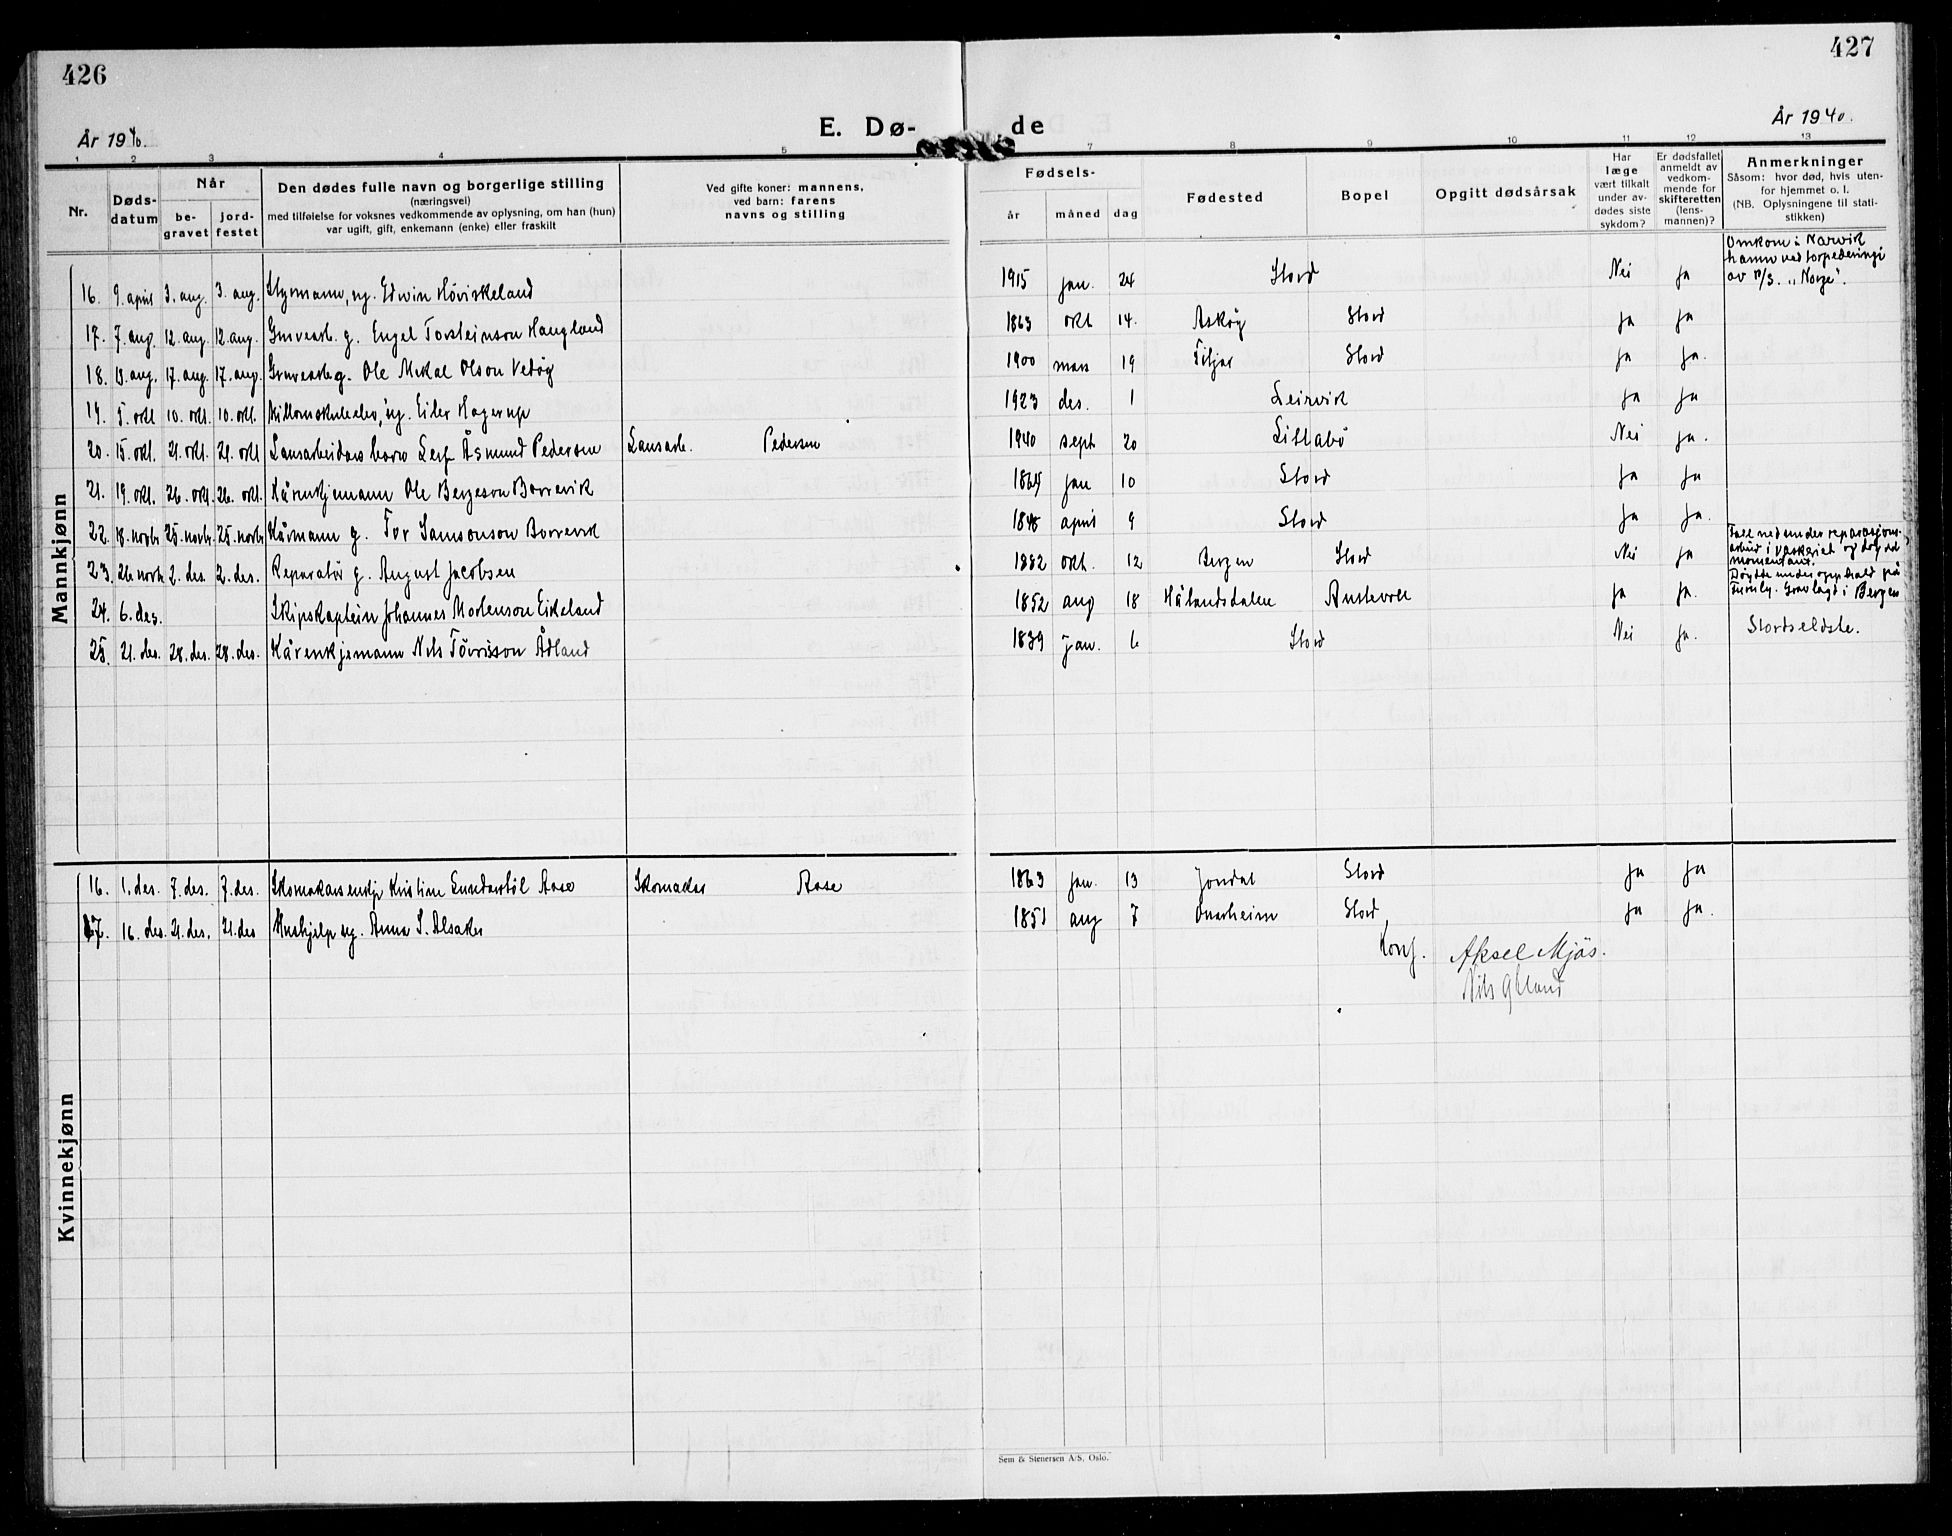 426
427
E. Dø- de
År 1940.
År 1940.
1 2 3 4 5 7 8 9 10 11 12 13
Nr.
Døds-
datum
Når
be-
gravet
jord-
festet
Den dødes fulle navn og borgerlige stilling
(næringsvei)
med tilføielse for voksnes vedkommende av oplysning, om han (hun)
var ugift, gift, enkemann (enke) eller fraskilt
Ved gifte koner: mannens,
ved barn: farens
navns og stilling
Fødsels-
år måned dag
Fødested
Bopel
Opgitt dødsårsak
Har
læge
vært tilkalt
under av-
dødes siste
sykdom?
Er dødsfallet
anmeldt av
vedkom-
mende for
skifteretten
(lens-
mannen)?
Anmerkninger
Såsom: hvor død, hvis uten-
for hjemmet o. l.
(NB. Oplysningene til stati-
stikken)
Mannkjønn
16. 9. april 3. aug. 3. aug. Styrmann, ug. Edwin Höviskeland 1915 jan. 24 Stord Nei ja Omkom i Narvik
hamn ved torpederingi
av P/S. "Norge".
17. 7. aug. 12. aug. 12. aug. Gruvearb. g. Engel Torsteinson Haugland 1863 okt 14. Askøy Stord ja ja
18. 13. aug. 17. aug. 17. aug. Gruvearb g. Ole Mikal Olson Vedøy 1900 mars 19 Fitjar Stord ja ja.
19. 5. okt 10. okt. 10. okt. Millomskuleelev, ug. Eiler Hagerup 1923 des. 1 Leirvik ja ja
20. 15. okt. 21. okt. 21. okt Lausarbeidars born Leif Åsmund Pedersen Lausarb. Pedersen 1940 sept 20 Littabö Nei ja.
21. 19. okt. 26. okt. 26. okt. Kårenkjemann Ole Bergeson Borrevik 1864 jan 10 Stord ja ja
22. 18. novbr 25. novbr. 25. novbr Kårmann g. Tor Samsonson Borrevik 1848 april 9 Stord ja ja.
23. 26 novbr 2. des. 2. des. Reparatör g. August Jacobsen 1882 okt. 12 Bergen Stord Nei ja Fall ned under reparasjons-
arbeid i vaskeriet og döydde
momentant.
24. 6. des. Skipskaptein Johannes Mortenson Eikeland 1852 aug 18 Hålandsdalen Austevoll ja ja. Döydde under opphald på
Turnly. Gravlagt i Bergen
25. 21. des. 28. des. 28. des. Kårenkjemann Nils Tövrisson Ådland 1839 jan. 6 Stord Nei ja. Stords eldste.
Kvinnekjønn
16. 1. des. 7. des. 7. des. Skomakarsenkje Kristine Aase Skomaker Aase 1863 jan. 13 Jondal Stord ja ja
17. 16. des. 21. des. 21. des Hushjelp ug. Anna S. Alsaker 1851 aug 7 Stord ja ja.
Konf. Aksel Mjös.
Nils
Sem & Stenersen A/S, Oslo.